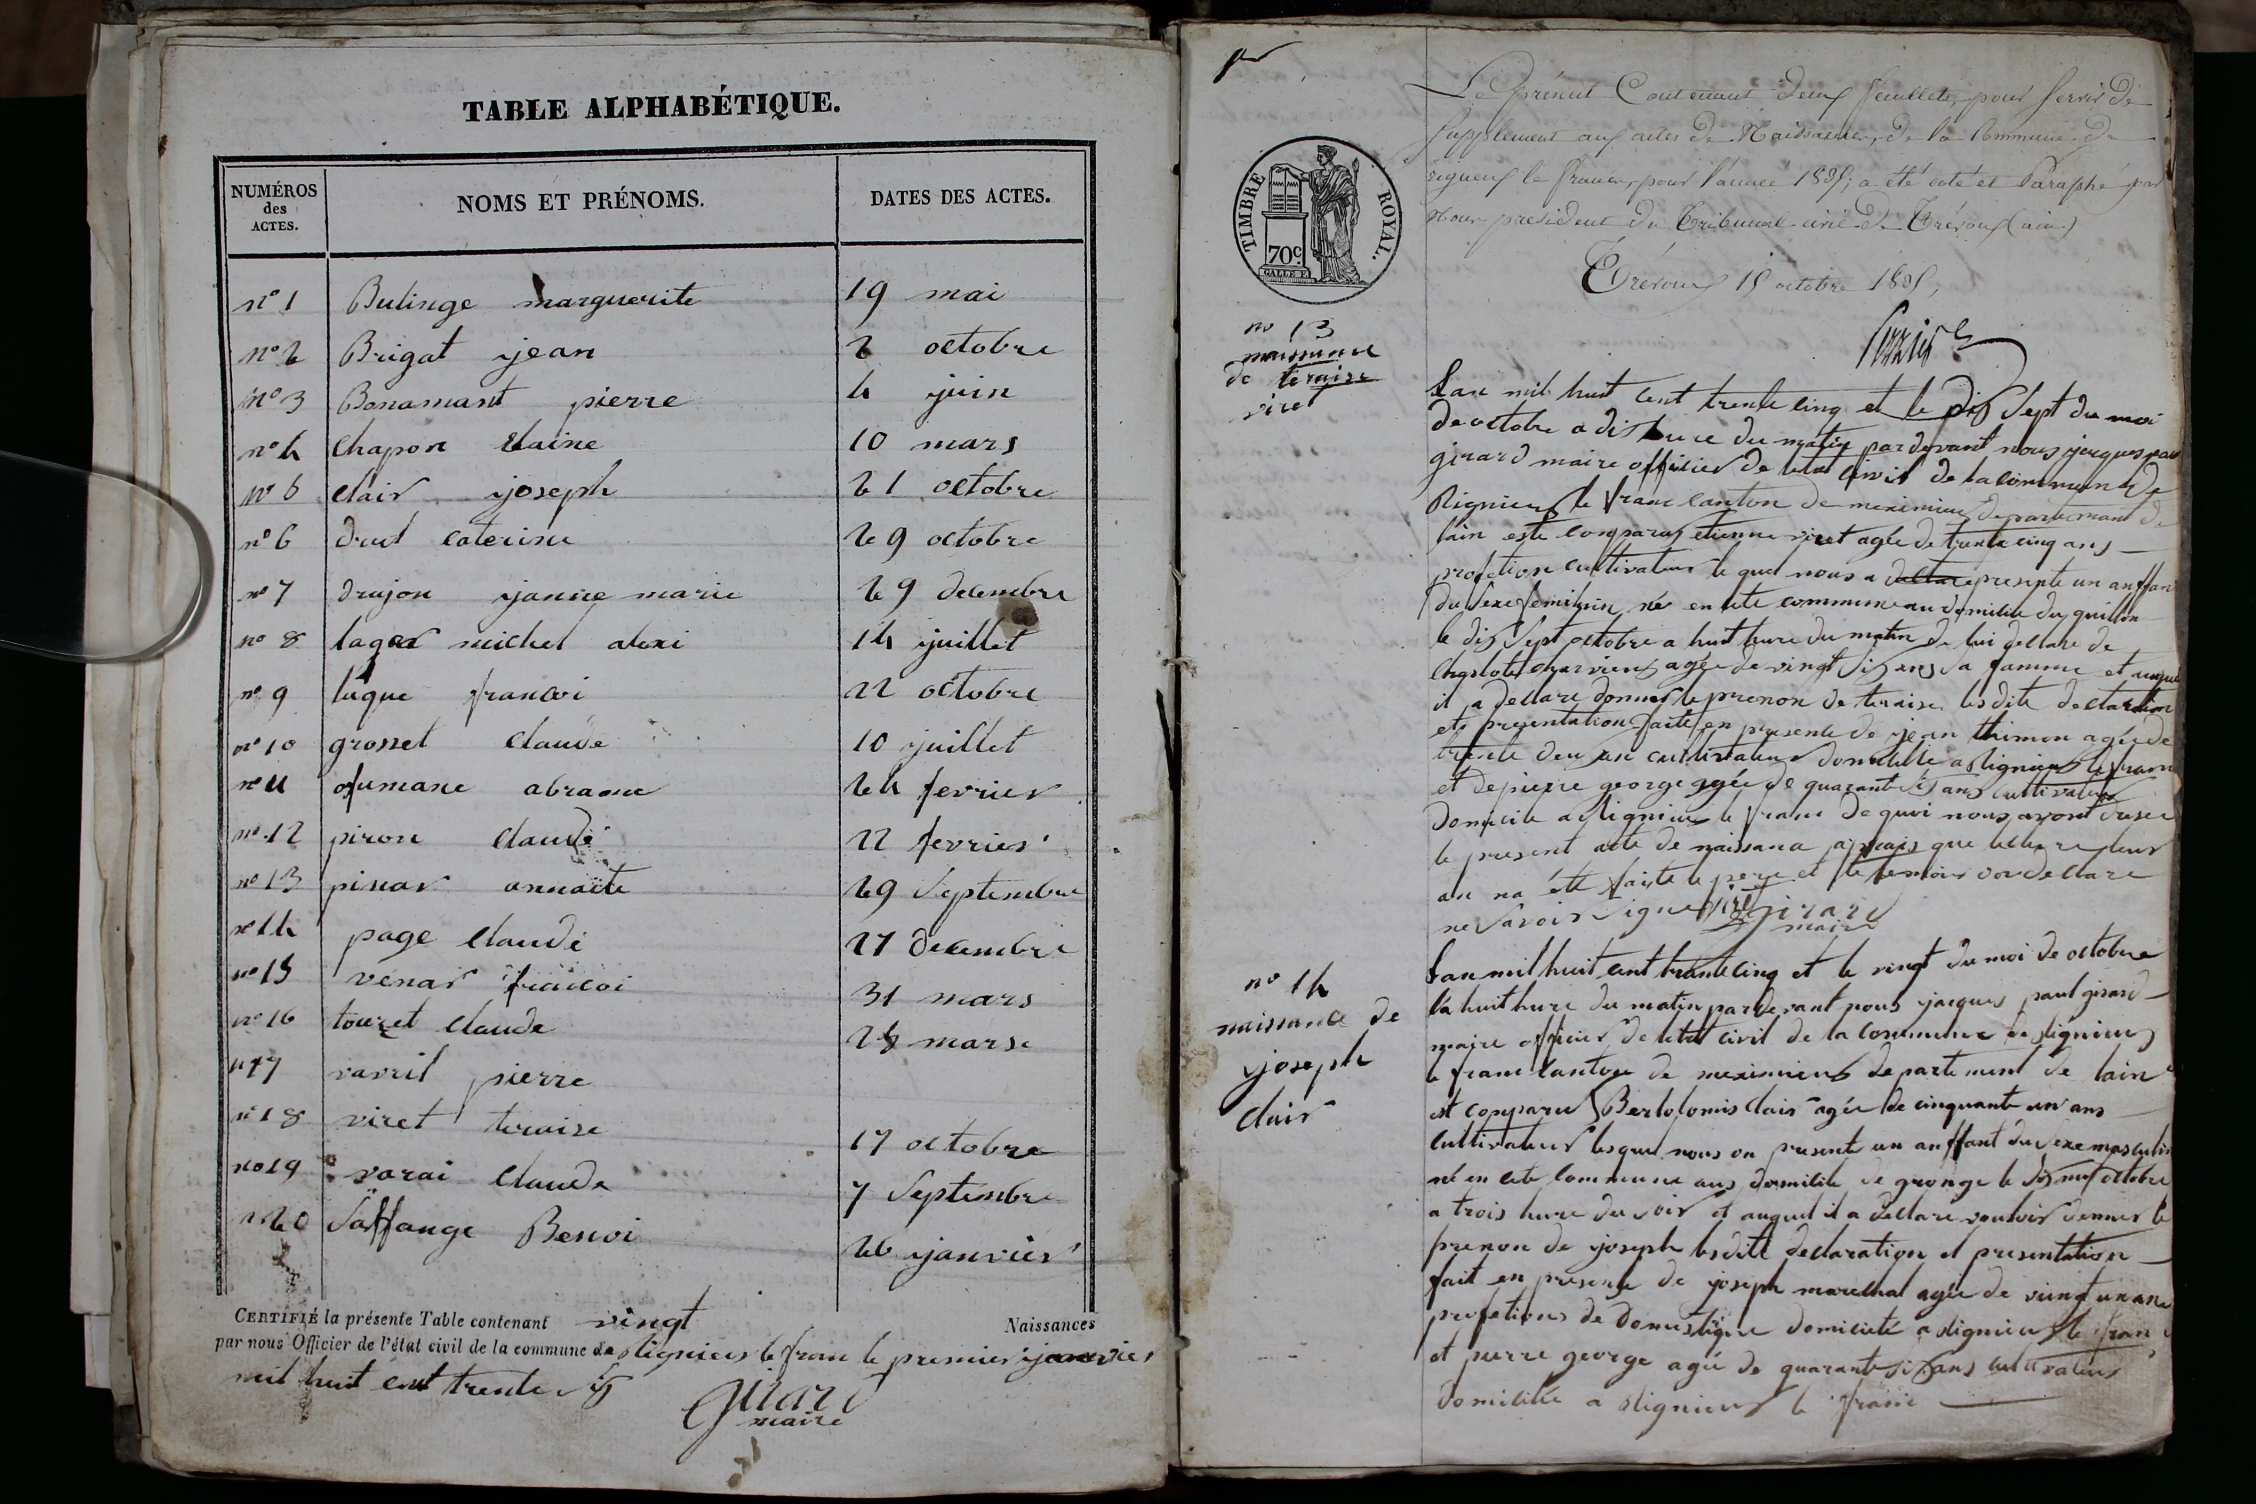 TABLE ALPHABÉTIQUE.
NUMÉROS des ACTES. NOMS ET PRÉNOMS. DATES DES ACTES.
nº 1 Bulinge marguerite 19 mai
nº 2 Brigat jean 2 octobre
nº 3 Bonamant pierre 4 juin
nº 4 Chapon 10 mars
nº 5 clair joseph 21 octobre
nº 6 drut caterine 29 octobre
nº 7 drujon janne marie 29 decembre
nº 8 lager michel alexi 14 juillet
nº 9 luque francoi 22 octobre
nº 10 grosset claude 10 juillet
nº 11 24 fevrier
nº 12 piron claude 22 fevrier
nº 13 pinar annaite 29 septembre
nº 14 page claude 27 decembre
nº 15 venar francoi 31 mars
nº 16 touzet claude 28 marse
nº 17 vavril pierre
nº 18 viret teraise 17 octobre
nº 19 varai claude 7 septembre
nº 20 Saffange Benoi 26 janvier
CERTIFIÉ la présente Table contenant vingt Naissances
par nous Officier de l'état civil de la commune de Rignieux le fran le premier janvier
mil huit cent trente six
girard
maire
Le présent Contenant deux feuillets, pour servir de
supplement aux actes de Naissances, de la Commune de
rigneux le franc, pour l'année 1835, a été coté et Paraphé par
Nous president du Tribunal civil de Trévoux (ain)
Trévoux 15 octobre 1835,
TIMBRE ROYAL.
70c.
nº 13
naissance
de teraise
viret
Lan mil huit cent trente cinq et le dix sept du moi
de octobre a dis hure du matin par devant nous jacques paul
girard maire officier de letat civil de la commune de
Rignieux le franc canton de meximieux departemant de
lain este comparus etienne viret agée de trente cinq ans
profetion cultivateur le quel nous a presente un anffan
du sexe feminin né en cete commune au domicile du guillon
le dix sept octobre a huit hure du matin de lui declare de
Charlote charvieux agée de vingt six ans sa famme et auquel
il a declare donner le prenon de teraise lesdite declaration
ete presentation faite en presente de jean thimon agée de
trente deux an cultivateur domicilié a Rignieux le franc
et de pierre george agée de quarant six ans cultivateur
domicile a Rignieux le franc de quoi nous avont dresse
le present acte de naissance apreais que lecture leur
an na été faite le pere et le temoins on declare
ne savoir signe viret girard
maire
nº 14
naissance de
joseph
clair
Lan mil huit cent trante cinq et le vingt du moi de octobre
a huit hure du matin par devant nous jacques paul girard
maire officier de letat civil de la commune de Rignieux
le franc canton de meximieux departement de lain
est comparu Bertolomis clair agée de cinquante un ans
cultivateur lesquel nous on presente un anffant du sexe masculin
né en cete commune aus domicile de grange le dix neuf octobre
a trois hure du soir et auquel il a declare vouloir donner le
prenon de joseph lesdite declaration et presentation
fait en presente de joseph marechal agée de vingt un ans
profetions de domestique domicilié a Rignieux le franc
et pierre george agée de quarante six ans cultivateur
domicilié a Rignieux le franc